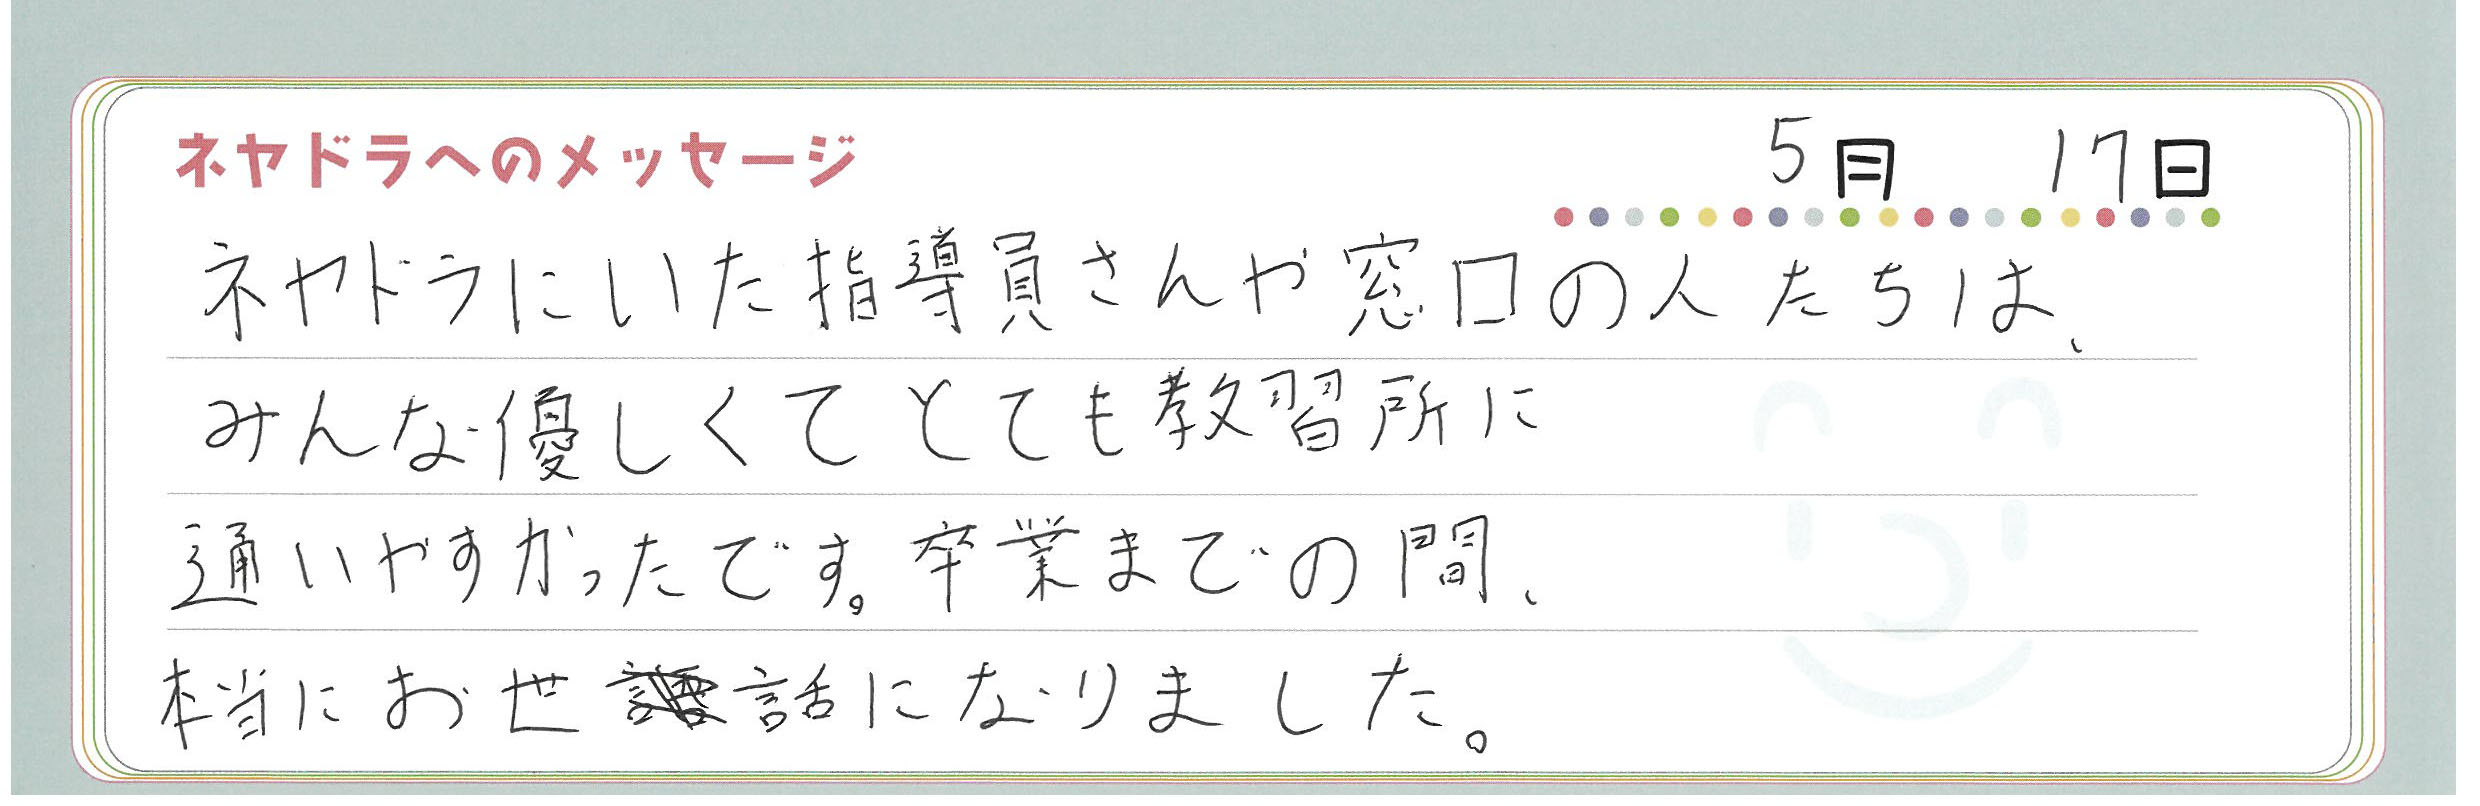 ネヤドラへのメッセージ
5月 17日
ネヤドラにいた指導員さんや窓口の人たちは、
みんな優しくてとても教習所に
通いやすかったです。卒業までの間、
本当にお世話になりました。